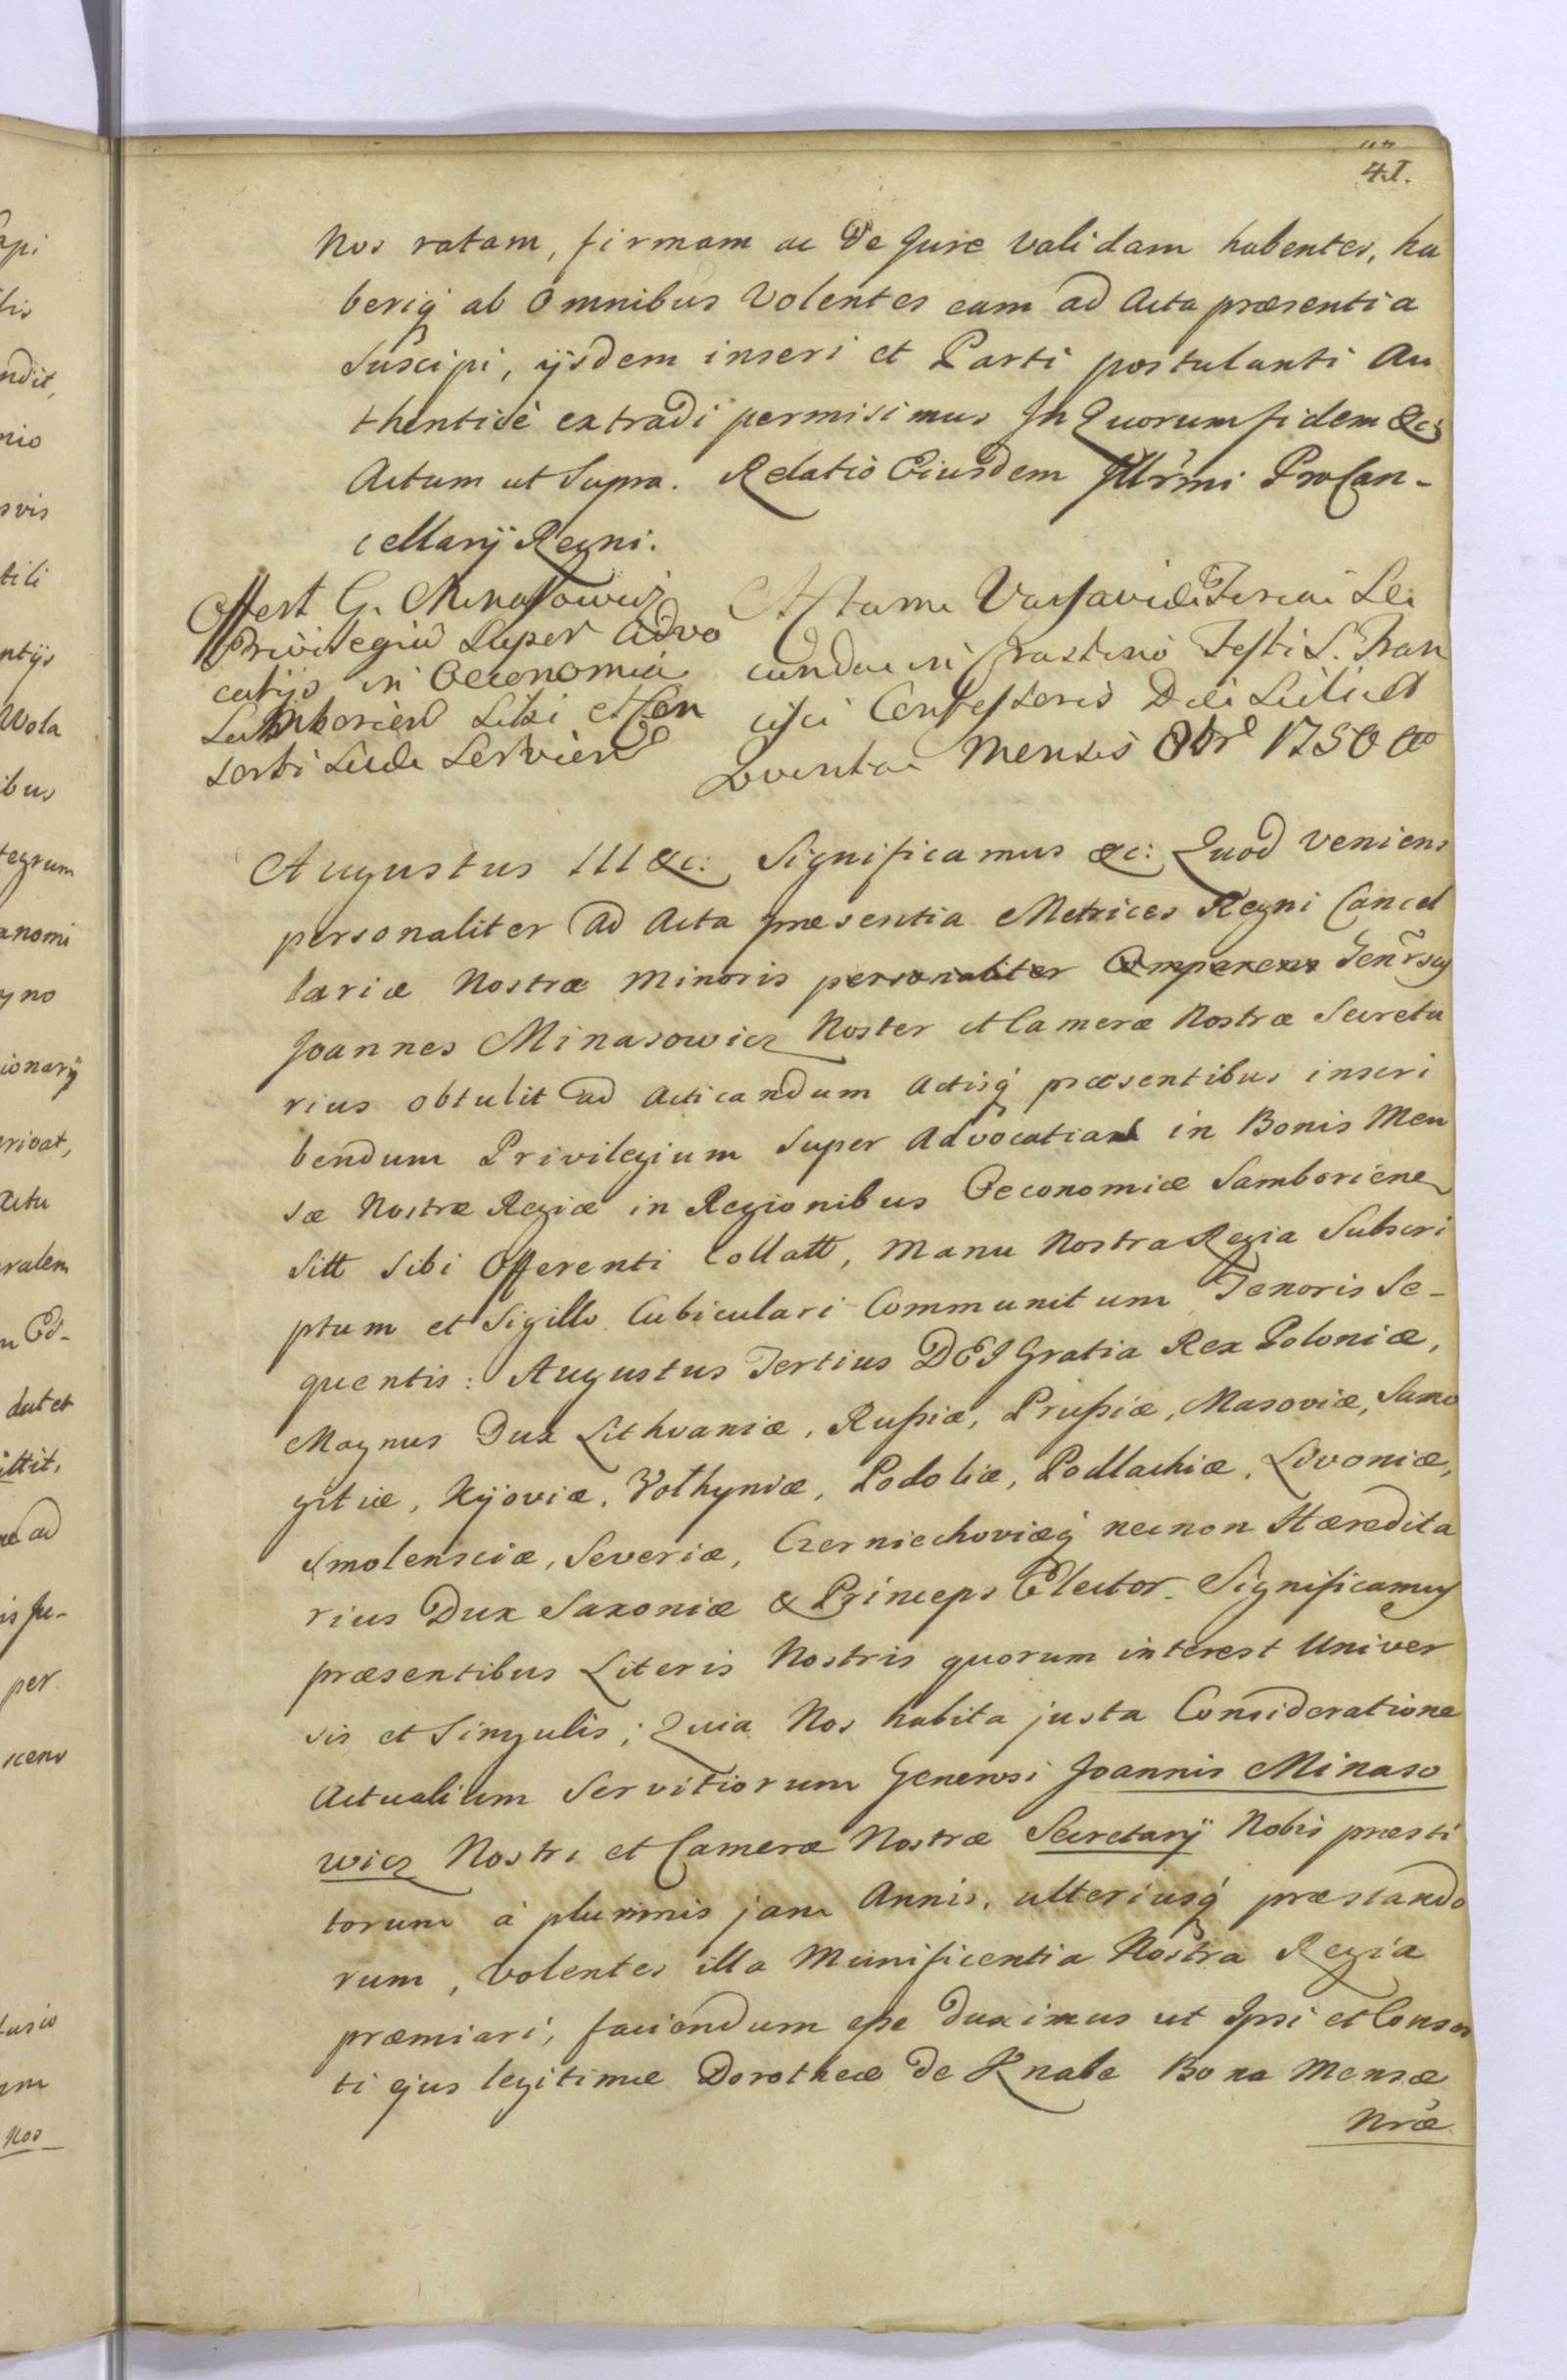 41.
Nos ratam, firmam ac De Jure validam habentes, ha
beriq́ ab omnibus volentes eam ad Acta præsentia
suscipi, ijsdem inseri et Parti postulanti Au
thenticè extradi permisimus In Quorum fidem &c:
Actum ut supra. Relatio Eiusdem Illrm̃i ProCan-
cellarij Regni.
Offert G. Minasowicz
Privilegiũ super Advo
catijs in Oeconomia
Samborien Sibi et Con
sorti suæ servien
Actum Varsaviæ Feria Se
cunda in Crastino Festi S. Fran
cisci Confessoris Die Scilicet
Quinta Mensis 8brl 1750 Ao
Augustus III &c: Significamus &c: Quod veniens
personaliter ad Acta præsentia Metrices Regni Cancel
lariæ Nostræ Minoris personaliter Comparens Genr̃sus
Joannes Minasowicz Noster et Cameræ Nostræ Secreta
rius obtulit ad Acticandum Actisq́ præsentibus inscri
bendum Privilegium super Advocatias in Bonis Men
sæ Nostræ Regiæ in Regionibus Oeconomiæ Samborien
sitt sibi Offerenti Collatt, Manu Nostra Regia Subscri
ptum et Sigillo Cubiculari Communitum Tenoris Se-
quentis: Augustus Tertius DEI Gratia Rex Poloniæ,
Magnus Dux Lithvaniæ, Rußiæ, Prußiæ, Masoviæ, Samo
gitiæ, Kijoviæ, Volhyniæ, Podoliæ, Podlachiæ, Livoniæ,
Smolensciæ, Severiæ, Czerniechoviæq́ necnon Hæredita
rius Dux Saxoniæ & Princeps Elector. Significamus
præsentibus Literis Nostris quorum interest Univer
sis et Singulis; Quia Nos habita justa Consideratione
Actualium Servitiorum Generosi Joannis Minaso
wicz Nostri et Cameræ Nostræ Secretarij Nobis præsti
torum à plurimis jam Annis, ulteriusq́ præstando
rum, volentes illa Munificentia Nostra Regia
præmiari, faciendum eße duximus ut Ipsi et Consor
ti ejus legitimæ Dorotheæ de Knabe Bona Mensæ
Nræ